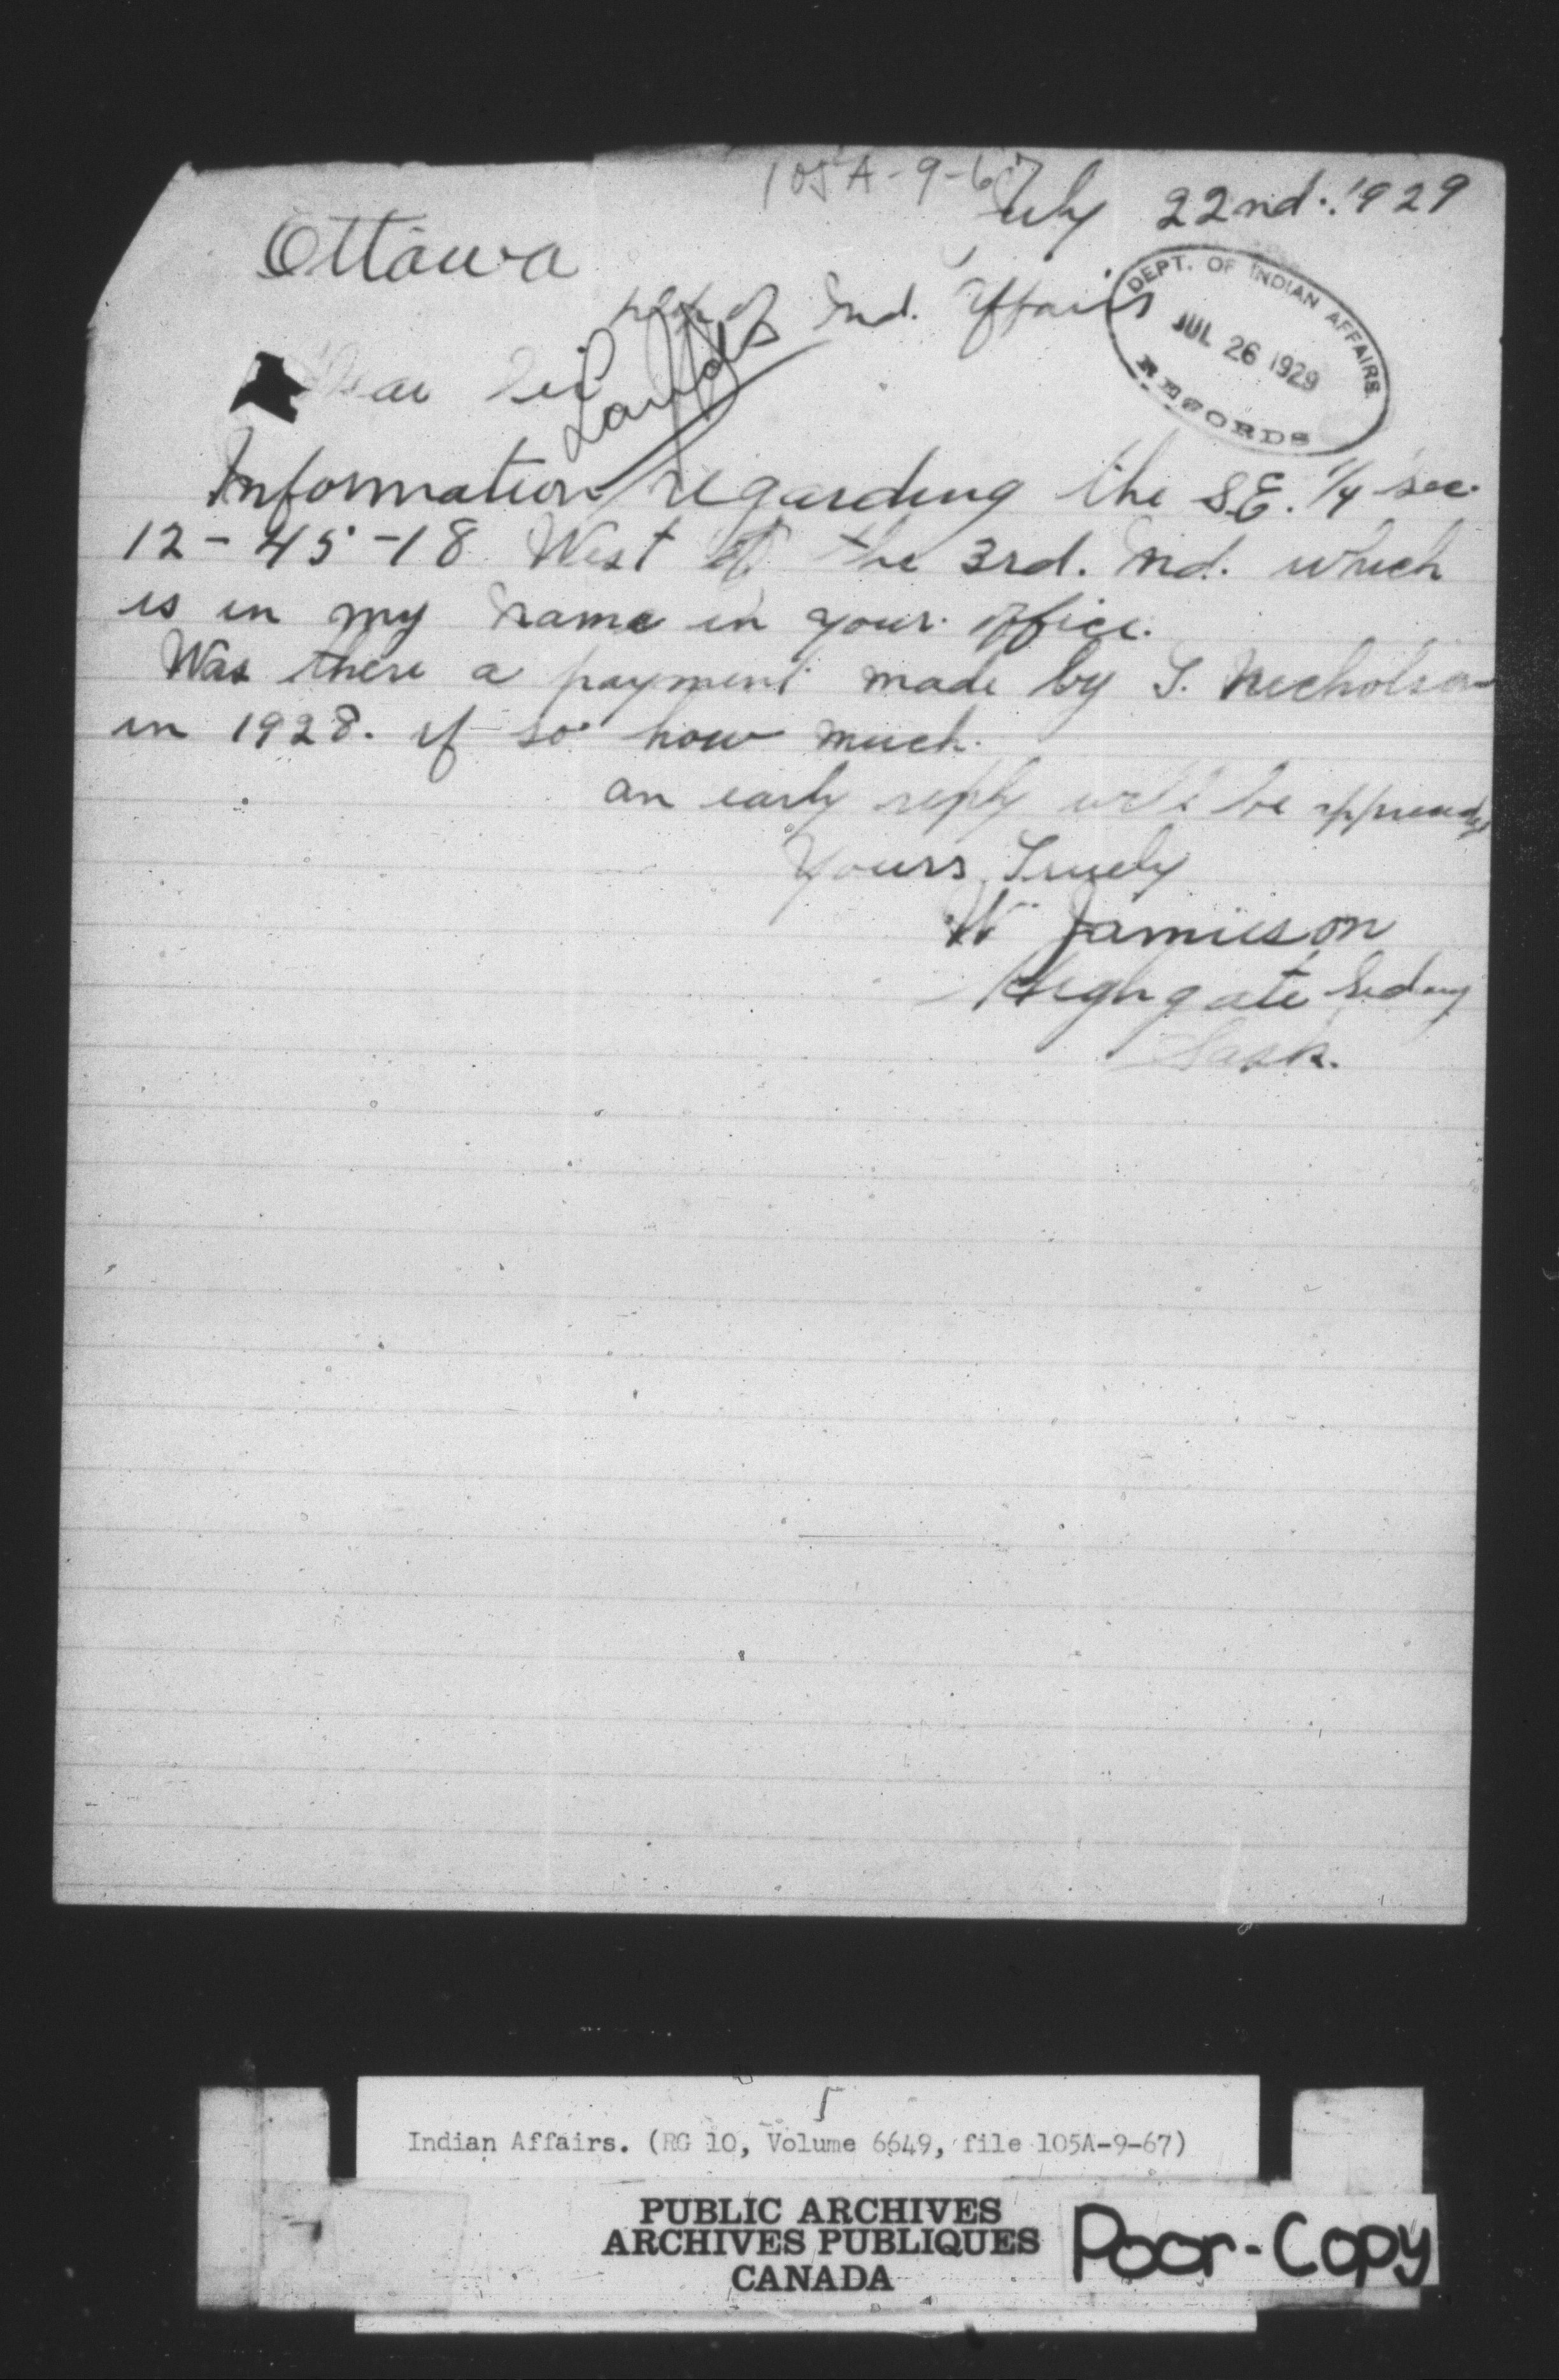 105A-9-67
July 22nd. 1929
Ottawa
Dept of Ind. Affairs
DEPT. OF INDIAN AFFAIRS
JUL 26 1929
RECORDS
Dear Sir
Lands
Information regarding the S.E. 1/4 sec.
12-45-18 West of the 3rd. Md. which
is in my name in your office.
Was there a payment made by T. Nicholson
in 1928. if so how much.
an early reply will be
Yours Truely
W Jamieson
Highgate Siding
Sask.
5
Indian Affairs. (RG 10, Volume 6649, file 105A-9-67)
PUBLIC ARCHIVES
ARCHIVES PUBLIQUES
CANADA
Poor-Copy